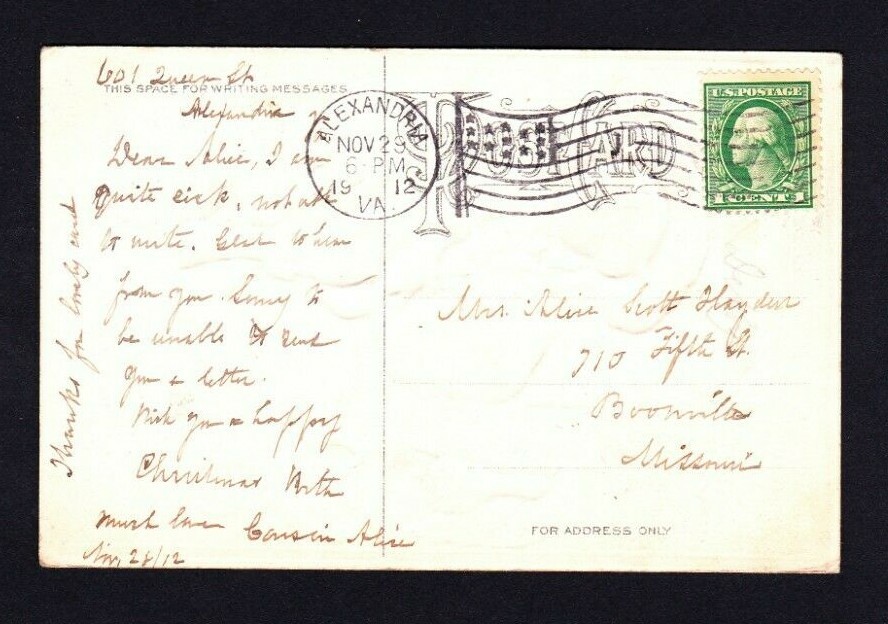 601 Queen St
THIS SPACE FOR WRITING MESSAGES
Alexandria
Dear Alice, I am
quite sick, not able
to write. Glad to hear
from you. Sorry to
be unable to send
you a letter.
Wish you a happy
Christmas With
much love Cousin Alice
Nov 28/12
Thanks for lovely card
POST CARD
ALEXANDRIA
NOV 29
6-PM
19 12
VA.
U.S. POSTAGE
1 CENT 1
Mrs. Alice Scott Hayden
710 Fifth St.
Boonville
Missouri
FOR ADDRESS ONLY